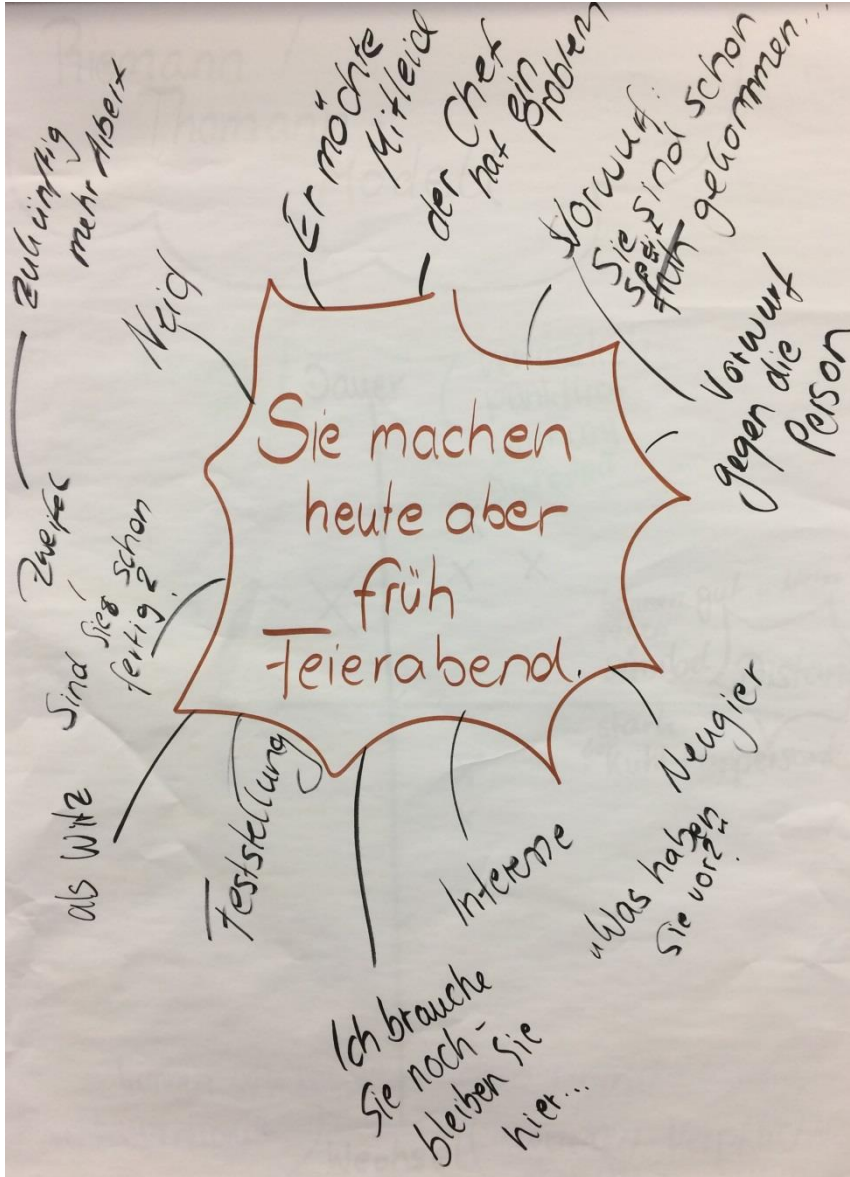 Sie machen
heute aber
früh
Feierabend.
Er möchte
Mitleid
der Chef
hat ein
Problem
Vorwurf:
Sie sind schon
spät gekommen...
Vorwurf
gegen die
Person
Neugier
"Was haben
Sie vor?"
Interesse
Ich brauche
Sie noch -
bleiben Sie
hier...
Feststellung
als Witz
Sind Sie schon
fertig?
Zweifel
zukünftig
mehr Arbeit
Neid